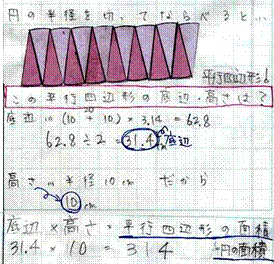 円の半径を切ってならべると…
平行四辺形も
この平行四辺形の底辺・高さは?
底辺 (10+10)×3.14=62.8
20
62.8÷2=31.4 底辺
cm
高さ 半径10cm だから
10cm
底辺×高さ=平行四辺形の面積
31.4×10=314 円の面積